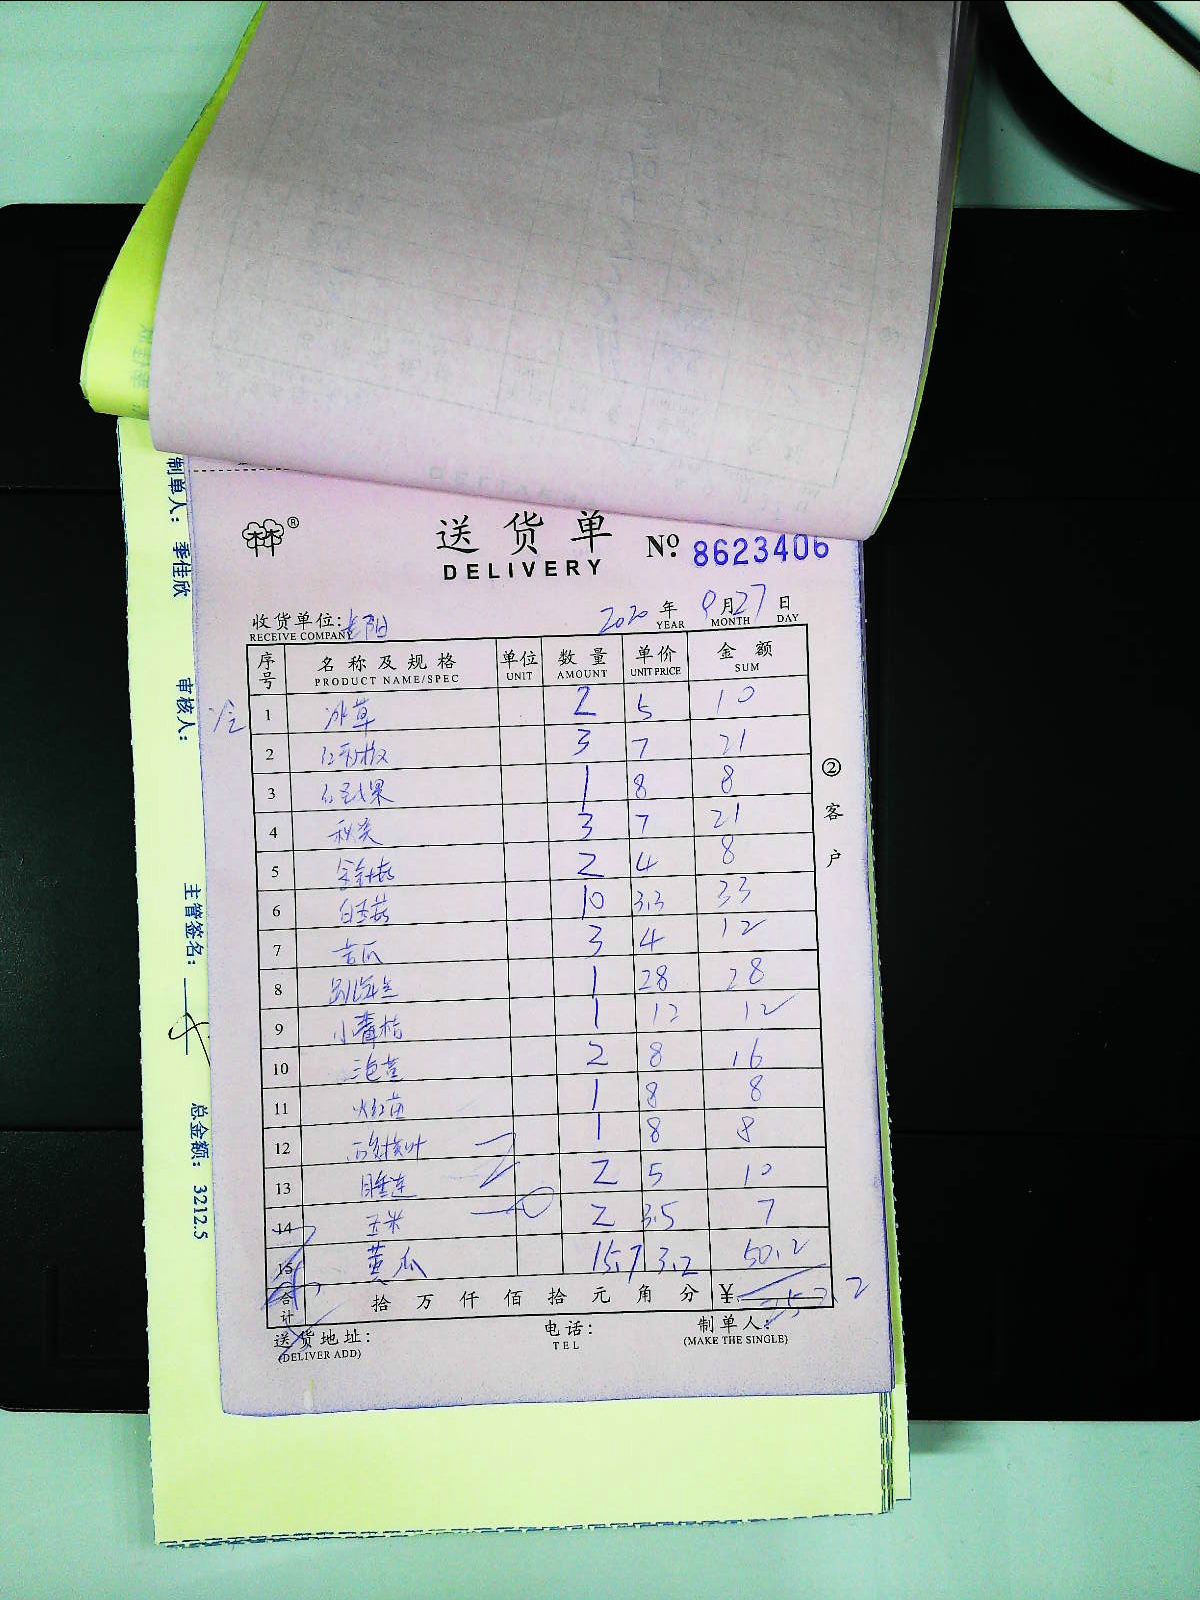 送货单
DELIVERY
No. 8623406
收货单位:
RECEIVE COMPANY
2020 年 9 月 27 日
YEAR MONTH DAY
序号 名称及规格 单位 数量 单价 金额
PRODUCT NAME/SPEC UNIT AMOUNT UNIT PRICE SUM
1 冰草 2 5 10
2 3 7 21
3 1 8 8
4 秋葵 3 7 21
5 金针菇 2 4 8
6 白玉菇 10 3.3 33
7 苦瓜 3 4 12
8 1 28 28
9 小青桔 1 12 12
10 2 8 16
11 1 8 8
12 1 8 8
13 睡连 2 5 10
14 玉米 2 3.5 7
15 黄瓜 15.7 3.2 50.2
合计 拾 万 仟 佰 拾 元 角 分 ¥
送货地址: 电话: 制单人:
(DELIVER ADD) TEL (MAKE THE SINGLE)
②客户
制单人: 季佳欣
审核人:
主管签名:
总金额: 3212.5